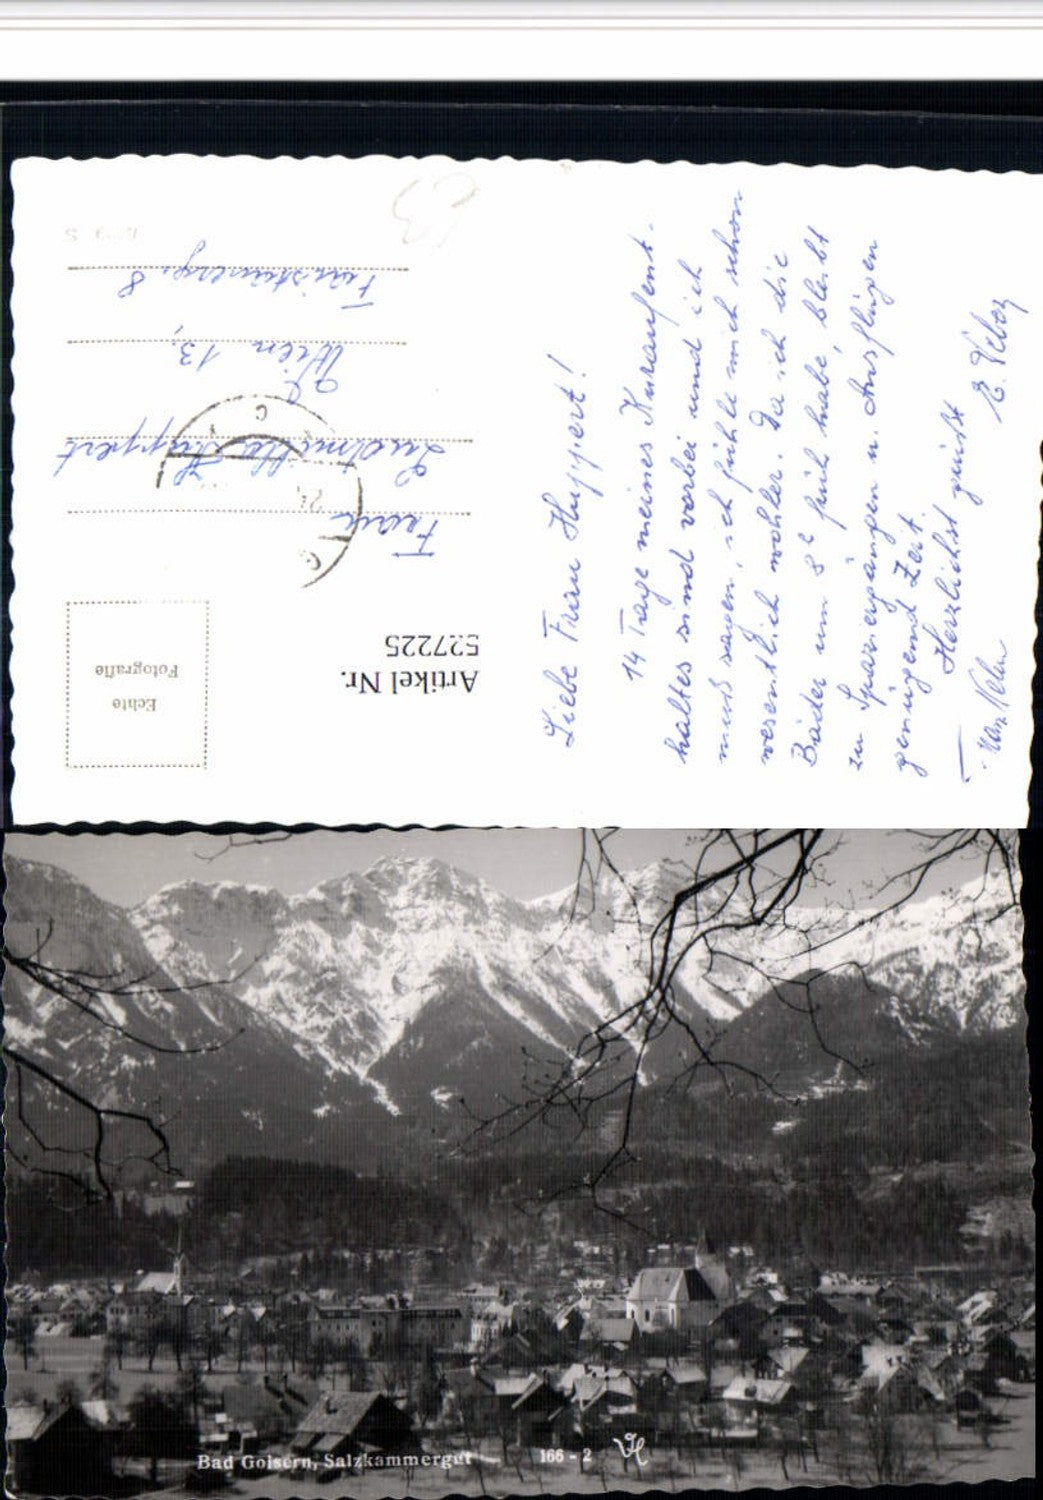 Liebe Frau Huppert!
14 Tage meines Kuraufent-
haltes sind vorbei und ich
muß sagen, ich fühle mich schon
wesentlich wohler. Da ich die
Bäder um 8h früh habe, bleibt
zu Spaziergängen u. Ausflügen
genügend Zeit.
Herzlichst grüßt
Echte
Fotografie
Artikel Nr.
527225
Frau
Ludmilla Huppert
Wien 13,
8
Bad Goisern, Salzkammergut 166 - 2